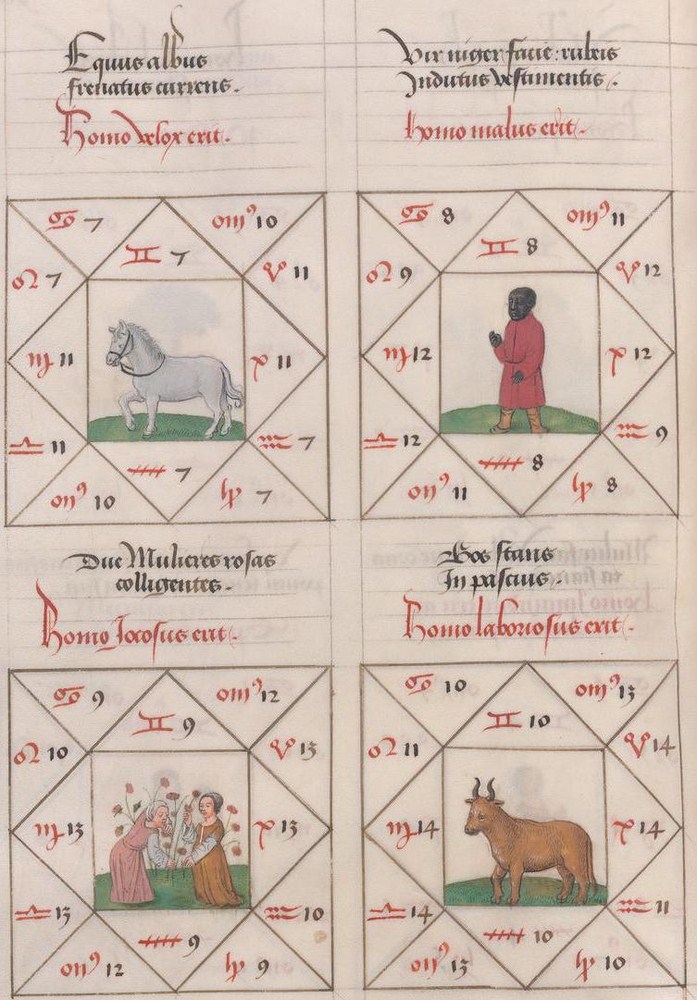 Equus albus
frenatus currens.
Homo velox erit.
♋ 7
♊ 7
om⁹ 10
♌ 7
♉ 11
♍ 11
♓ 11
♎ 11
♒ 7
♐ 7
om⁹ 10
♑ 7
Vir niger facie: rubeis
Indutus vestimentis.
homo malus erit.
♋ 8
♊ 8
om⁹ 11
♌ 9
♉ 12
♍ 12
♓ 12
♎ 12
♒ 9
♐ 8
om⁹ 11
♑ 8
Due Mulieres rosas
colligentes.
Homo Jocosus erit.
♋ 9
♊ 9
om⁹ 12
♌ 10
♉ 13
♍ 13
♓ 13
♎ 13
♒ 10
♐ 9
om⁹ 12
♑ 9
Bos stans
In pascuis.
Homo laboriosus erit.
♋ 10
♊ 10
om⁹ 13
♌ 11
♉ 14
♍ 14
♓ 14
♎ 14
♒ 11
♐ 10
om⁹ 13
♑ 10